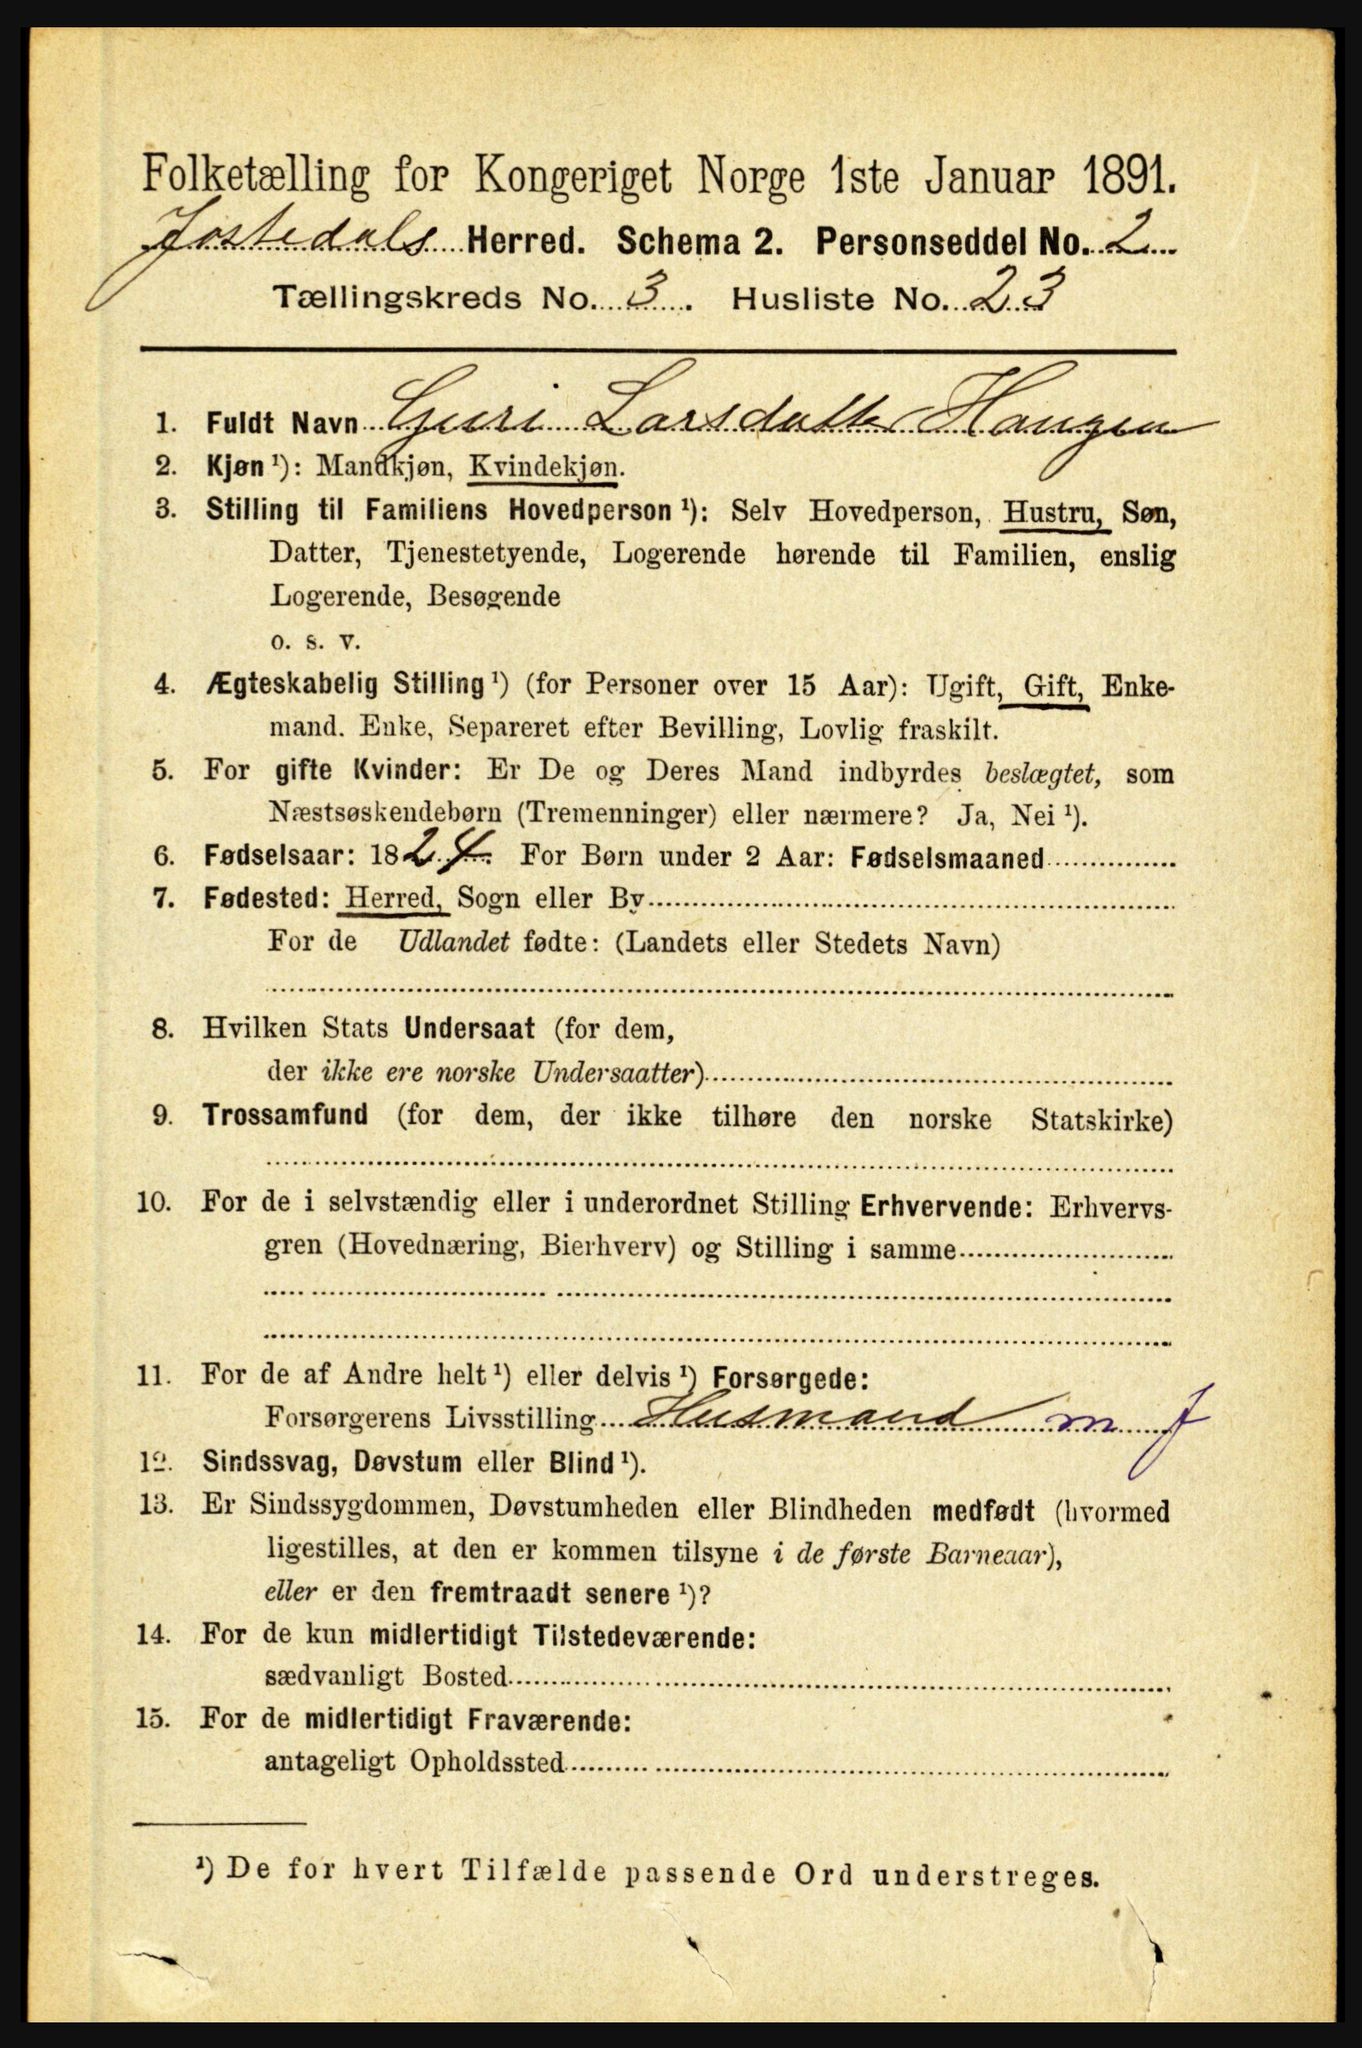 Folketælling for Kongeriget Norge 1ste Januar 1891.
Jostedals Herred. Schema 2. Personseddel No. 2
Tællingskreds No. 3. Husliste No. 23
1. Fuldt Navn Guri Larsdatter Haugen
2. Kjøn ¹): Mandkjøn, Kvindekjøn.
3. Stilling til Familiens Hovedperson ¹): Selv Hovedperson, Hustru, Søn,
Datter, Tjenestetyende, Logerende hørende til Familien, enslig
Logerende, Besøgende
o. s. v.
4. Ægteskabelig Stilling ¹) (for Personer over 15 Aar): Ugift, Gift, Enke-
mand. Enke, Separeret efter Bevilling, Lovlig fraskilt.
5. For gifte Kvinder: Er De og Deres Mand indbyrdes beslægtet, som
Næstsøskendebørn (Tremenninger) eller nærmere? Ja, Nei ¹).
6. Fødselsaar: 1824. For Børn under 2 Aar: Fødselsmaaned
7. Fødested: Herred, Sogn eller By
For de Udlandet fødte: (Landets eller Stedets Navn)
8. Hvilken Stats Undersaat (for dem,
der ikke ere norske Undersaatter)
9. Trossamfund (for dem, der ikke tilhøre den norske Statskirke)
10. For de i selvstændig eller i underordnet Stilling Erhvervende: Erhvervs-
gren (Hovednæring, Bierhverv) og Stilling i samme
11. For de af Andre helt ¹) eller delvis ¹) Forsørgede:
Forsørgerens Livsstilling Husmand m J
12. Sindssvag, Døvstum eller Blind ¹).
13. Er Sindssygdommen, Døvstumheden eller Blindheden medfødt (hvormed
ligestilles, at den er kommen tilsyne i de første Barneaar),
eller er den fremtraadt senere ¹)?
14. For de kun midlertidigt Tilstedeværende:
sædvanligt Bosted
15. For de midlertidigt Fraværende:
antageligt Opholdssted
¹) De for hvert Tilfælde passende Ord understreges.